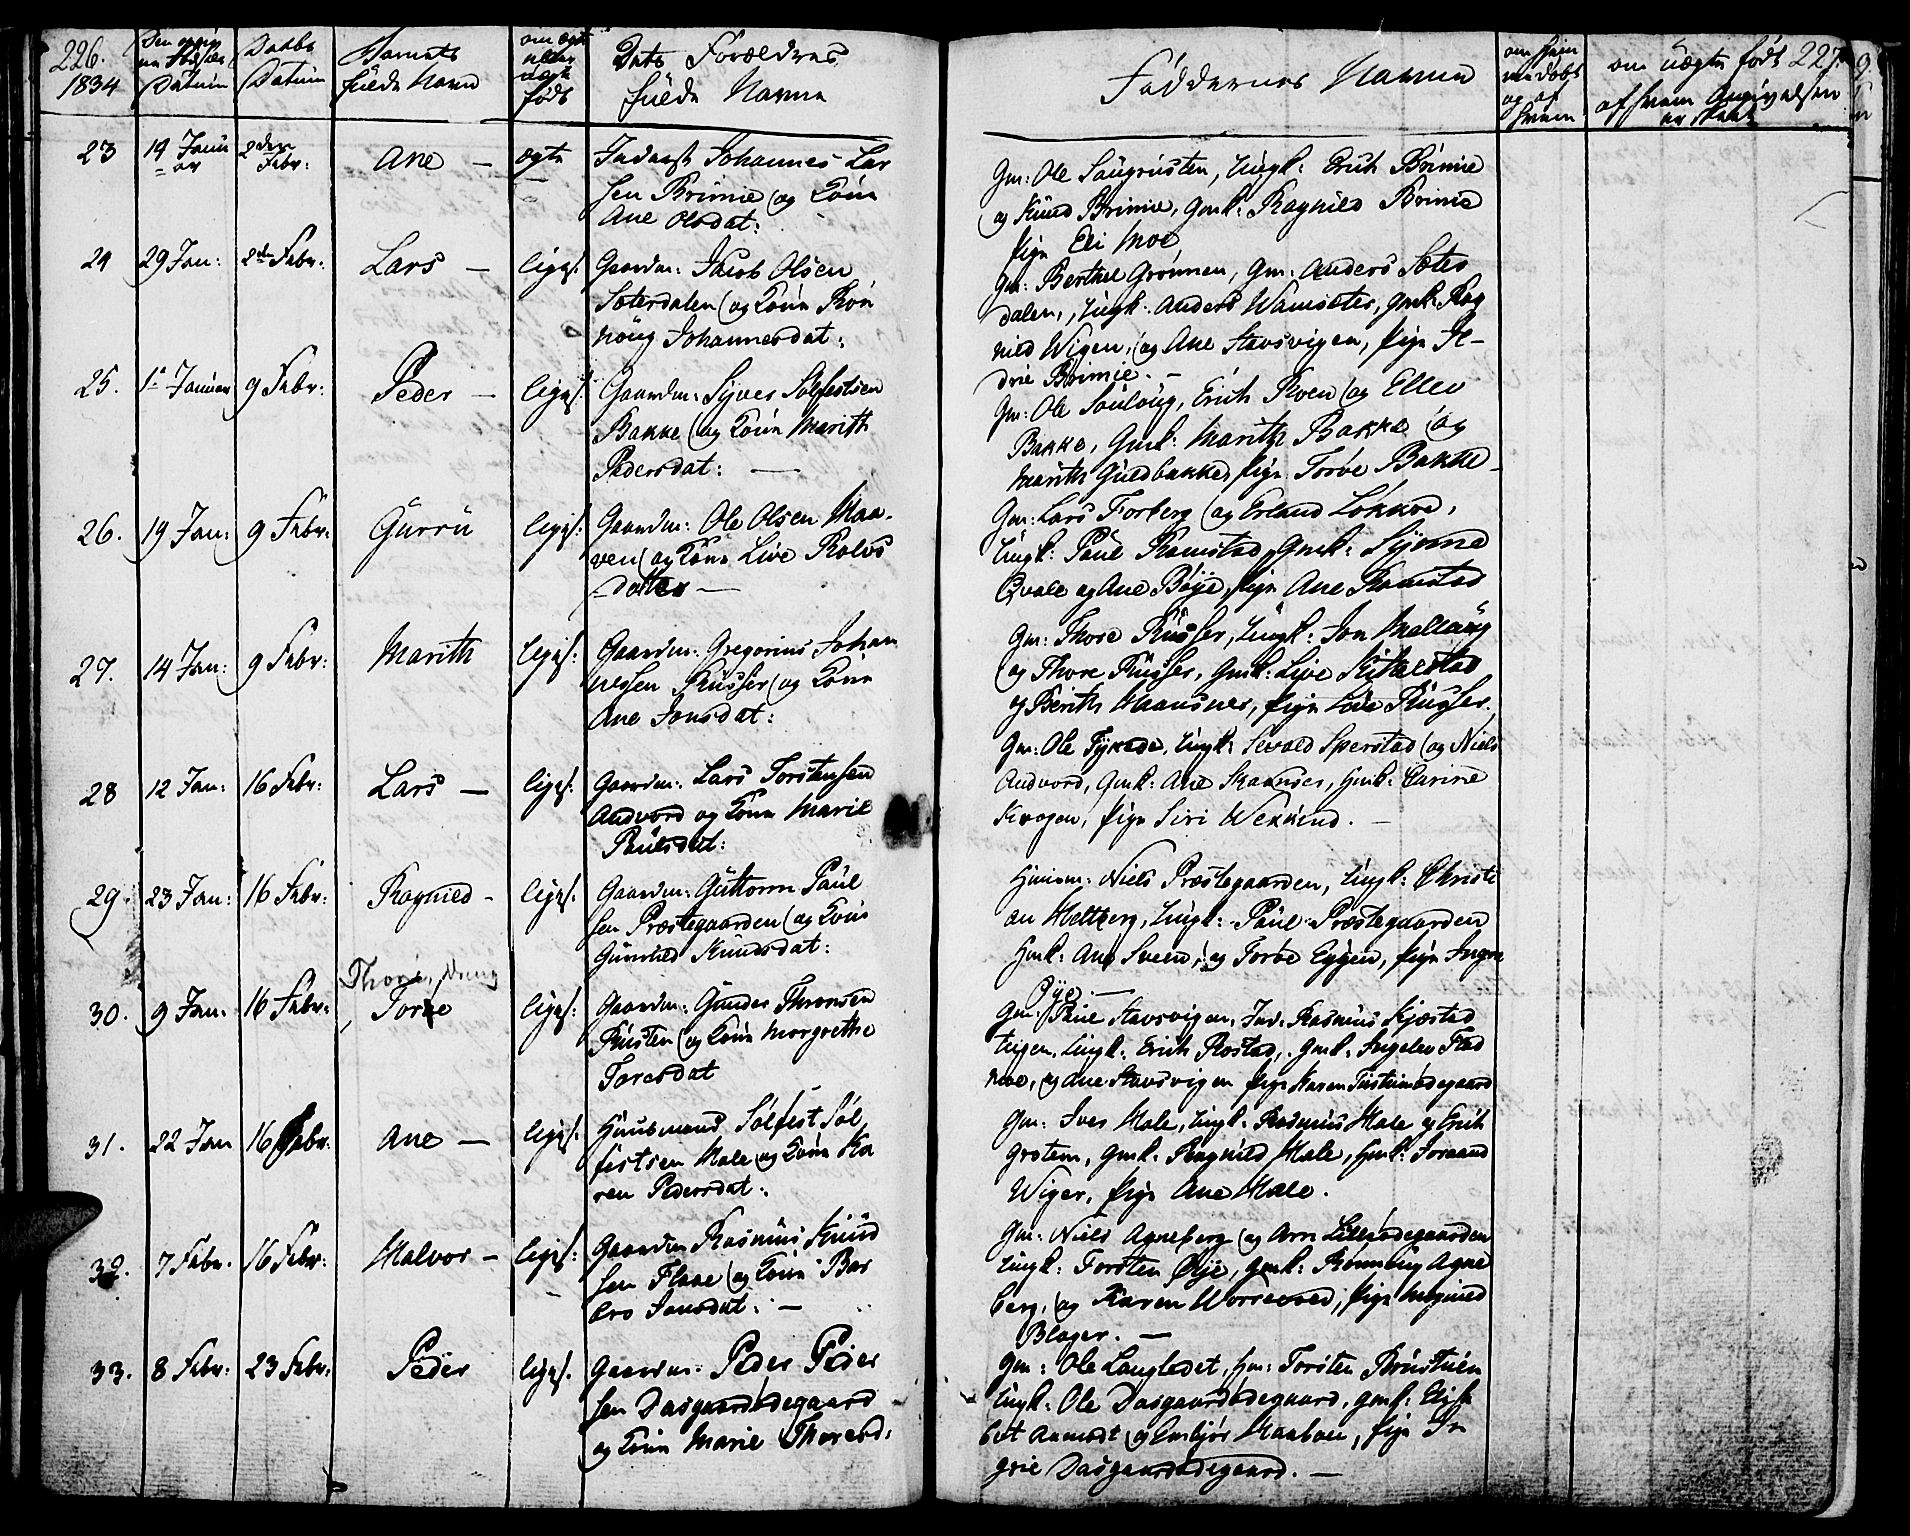 226.
1834
Døbe
Datum
Datum
Barnets
fulde Navn
om ægte
eller
uægte
født
Dets Forældres
fulde Navne
Faddernes Navne
om hjem
medøbt
og af
hvem
om uægte født 227.
af hvem Angivelsen
er skeet
23
19 Janu
ar
2den
Febr:
Ane —
ægte
Inderst Johannes Lar
sen Brimie og Kone
Ane Olsdat:
Gm: Ole Saugrusten, Ungk: Erich Brimie
og Knud Brimie, Gmk: Ragnild Brimie
Pige Eli Moe
24
29 Jan:
2den Febr:
Lars —
liges:
Gaardm: Jacob Olsen
Sæterdalen og Kone Røn
nøug Johannesdat:
Gm: Berthel Grønnen, Gm: Anders Sæter
dalen, Ungk: Anders Wamsæter, Gmk: Rag
nild Wigen, og Ane Stavsvigen, Pige
Brimie. —
25.
1. Januar
9 Febr:
Peder —
liges:
Gaardm: Syver Solfestsen
Bakke og Kone Marith
Pedersdat: —
Gm: Ole Søuloug, Erich Roen og Ellev
Bakke, Gmk: Marith Bakke og
Marith Guldbakke, Pige Torbe Bakke
26.
19 Jan:
9 Febr:
Gurru
ligs:
Gaardm: Ole Olsen Haa-
ven og Kone Live Rolvs
datter —
Gm: Lars Forberg og Erland Løkkre,
Ungk: Paul Ramstad, Gmk: Syvnne
Qvale og Ane Bøye, Pige Ane Ramstad
27.
14 Jan:
9 Febr:
Marith
ligs:
Gaardm: Gregorius Johan
nesen Russer og Kone
Ane Jonsdat:
Gm: Thore Russer, Ungk: Jon Mellaug
og Thore Russer, Gmk: Live Kitkelstad
og Berith Maansnes, Pige Live Rusler.
28
12 Jan:
16 Febr:
Lars —
ligs:
Gaardm: Lars Torstensen
Andvord og Kone Marie
Paulsdat:
Gm: Ole Ungk: Sevald Sperstad og Niels
Andvord, Gmk: Ane Skaansar, Hmk: Carine
Kvagen, Pige Siri Wekkind. —
29.
23 Jan:
16 Febr:
Ragnild —
ligs:
Gaardm: Guttorm Paul
sen Præstegaarden og Kone
Gunild Knudsdat:
Husm: Niels Præstegaarden, Ungk: Christi
an Heltberg, Ungk: Paul Præstegaarden
Hmk: Ane Sveen, og Torbe Eggen, Pige Ingre
Øye. —
30.
9 Jan:
16 Febr:
Thore, dreng
Torbe
ligs:
Gaardm: Gunder Thronsen
Rusten og Kone Margrethe
Toresdat
Gm: Paul Stavsvigen, Ind: Rasmus Kjæstad
teigen, Ungk: Erich Rostad, Gmk: Ingelev Flad
moe, og Ane Stavsvigen Pige Karen
31.
22 Jan
16 Febr:
Ane —
ligs:
Huusmand Solfest Sol
festsen Hole og Kone Ka
ren Pedersdat:
Gm: Iver Hole, Ungk: Rasmus Hole og Erich
Grotem, Gmk: Ragnild Hole, Hmk: Joraand
Wiger, Pige Ane Hole.
32.
7 Febr.
16 Febr:
Halvor —
ligs:
Gaardm Rasmus Knud
sen Flaae og Kone Bar
bro Jonsdat: —
Gm: Niels Agneberg og Arn Lilleødegaarden
Ungk: Torsten Øye, Gmk: Rønnaug Agne
berg, og Karen Worrevoed, Pige Magnild
Blager. —
33.
8 Febr:
23 Febr:
Peder
ligs.
Gaardm. Peder Peder
sen Dasgaardødegaard
og Kone Marie Thoresd:
Gm: Ole Langledet, Hm: Torsten Brustuen
Ungk: Ole Dasgaardødegaard, Gmk: Elisa
bet Aamodt og Embjør Haaboe, Pige In
grie Dasgaardødegaard. —